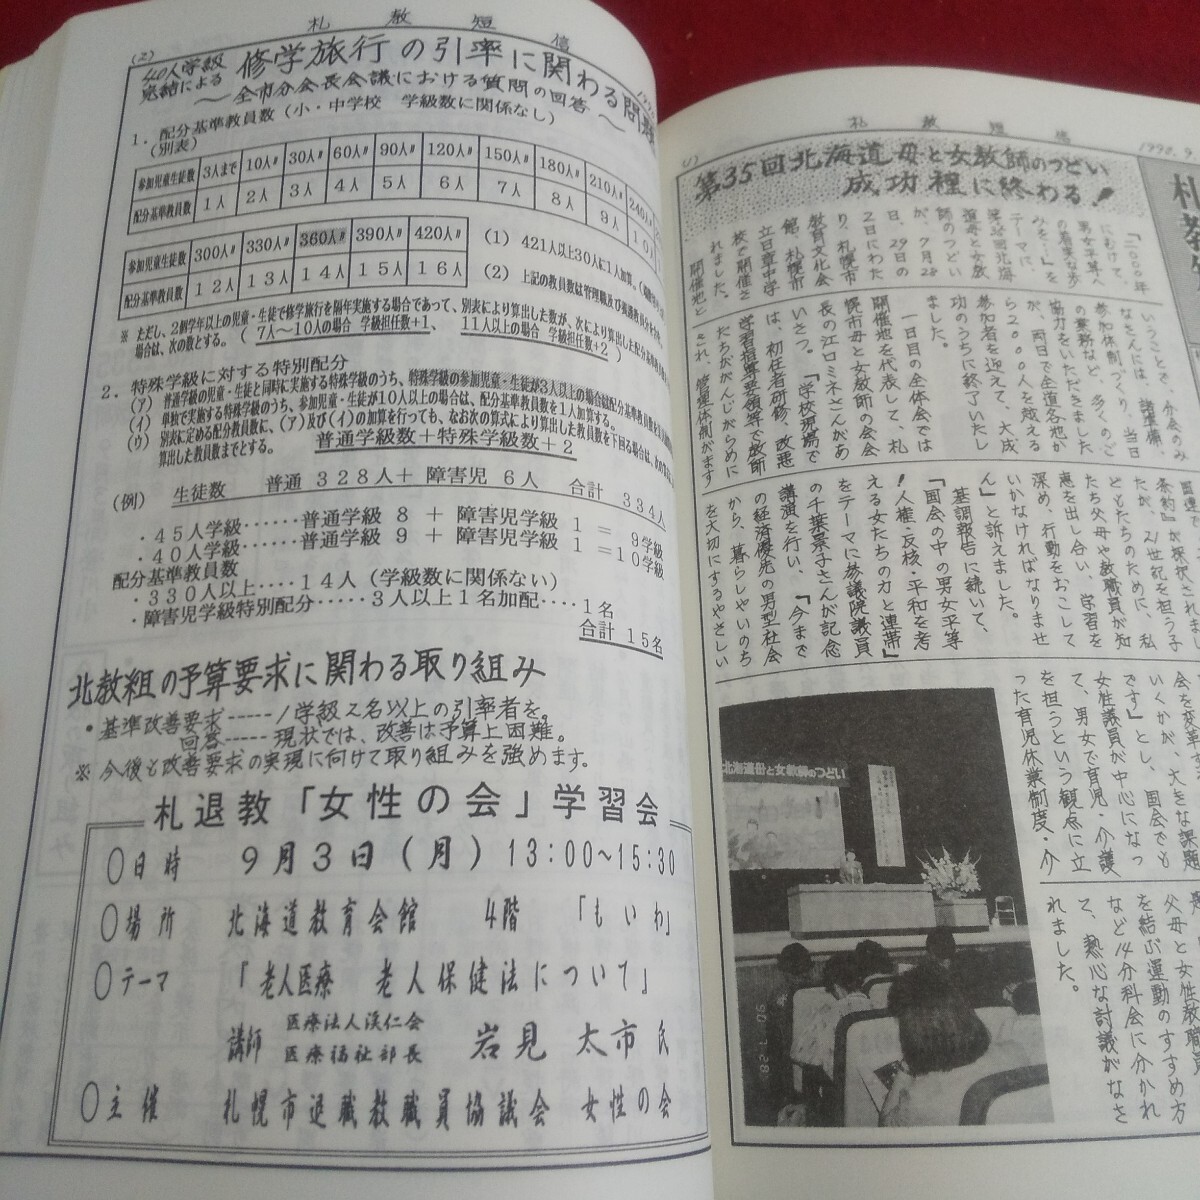 (2)
札教短信
40人学級
完結による
修学旅行の引率に関わる問題
〜全市分会長会議における質問の回答〜
1. 配分基準教員数(小・中学校 学級数に関係なし)
(別表)
参加児童生徒数 3人まで 10人〃 30人〃 60人〃 90人〃 120人〃 150人〃 180人〃 210人〃 240人
配分基準教員数 1人 2人 3人 4人 5人 6人 7人 8人 9人 10人
参加児童生徒数 300人〃 330人〃 360人〃 390人〃 420人〃
配分基準教員数 12人 13人 14人 15人 16人
(1) 421人以上30人に1人加算。
(2) 上記の教員数は管理職及び養護教員分を含
※ ただし、2個学年以上の児童・生徒で修学旅行を隔年実施する場合であって、別表により算出した数が、次により算出した配分基準教員
場合は、次の数とする。(7人〜10人の場合 学級担任数+1、 11人以上の場合 学級担任数+2)
2. 特殊学級に対する特別配分
(ア) 普通学級の児童・生徒と同時に実施する特殊学級のうち、特殊学級の参加児童・生徒が3人以上の場合は配分基準教員数を
(イ) 単独で実施する特殊学級のうち、参加児童・生徒が10人以上の場合は、配分基準教員数を1人加算する。
(ウ) 別表に定める配分教員数に、(ア)及び(イ)の加算を行っても、なお次の算式により算出した教員数を下回る場合は、次の
算出した教員数までとする。
普通学級数+特殊学級数+2
(例) 生徒数 普通 328人+ 障害児 6人 合計 334人
・45人学級……普通学級 8 + 障害児学級 1 = 9学級
・40人学級……普通学級 9 + 障害児学級 1 =10学級
配分基準教員数
・330人以上‥‥14人(学級数に関係ない)
・障害児学級特別配分‥‥‥3人以上1名加配‥‥1名
合計 15名
北教組の予算要求に関わる取り組み
・基準改善要求-----1学級2名以上の引率者を。
回答-----現状では、改善は予算上困難。
※ 今後も改善要求の実現に向けて取り組みを強めます。
札退教「女性の会」学習会
○日時 9月3日(月)13:00〜15:30
○場所 北海道教育会館 4階 「もいわ」
○テーマ 「老人医療 老人保健法について」
講師 医療法人渓仁会
医療福祉部長 岩見 太市 氏
○主催 札幌市退職教職員協議会 女性の会
札教短信
1990.9.
第35回北海道母と女教師のつどい
成功裡に終わる!
「二〇〇〇年
にむけて、
男女平等へ
の着実な歩
みを」を
テーマに
第35回北海
道母と女教
師のつどい
が、7月28
日、29日の
2日にわた
り、札幌市
教育文化会
館、札幌市
立日章中学
校で開催さ
れました。
開催地と
いうことで、分会のみ
なさんには、諸準備、
参加体制づくり、当日
の業務など、多くのご
協力をいただきました
が、両日で全道各地か
ら2000人を越える
参加者を迎えて、大成
功のうちに終了いたし
ました。
一日目の全体会では
開催地を代表して、札
幌市母と女教師の会会
長の江口ミネさんがあ
いさつ。「学校現場で
は、初任者研修、改悪
学習指導要領等で教師
たちががんじがらめに
され、管理体制がます
条約』が採択されまし
たが、21世紀を担う子
どもたちのために、私
たち父母や教職員が知
恵を出し合い、学習を
深め、行動をおこして
いかなければなりませ
ん」と訴えました。
基調報告に続いて、
「国会の中の男女平等
/人権・反核・平和を考
える女たちの力と連帯」
をテーマに参議院議員
の千葉景子さんが記念
講演を行い、「今まで
の経済優先の男型社会
から、暮らしやいのち
を大切にするやさしい
会を変革す
いくかが、大きな課題
です」とし、国会でも
女性議員が中心になっ
て、男女で育児・介護
を担うという観点に立
った育児休業制度・介
父母と女性教職員
を結ぶ運動のすすめ方
など14分科会に分かれ
て、熱心な討議がなさ
れました。
北海道母と女教師のつどい
90.7.28